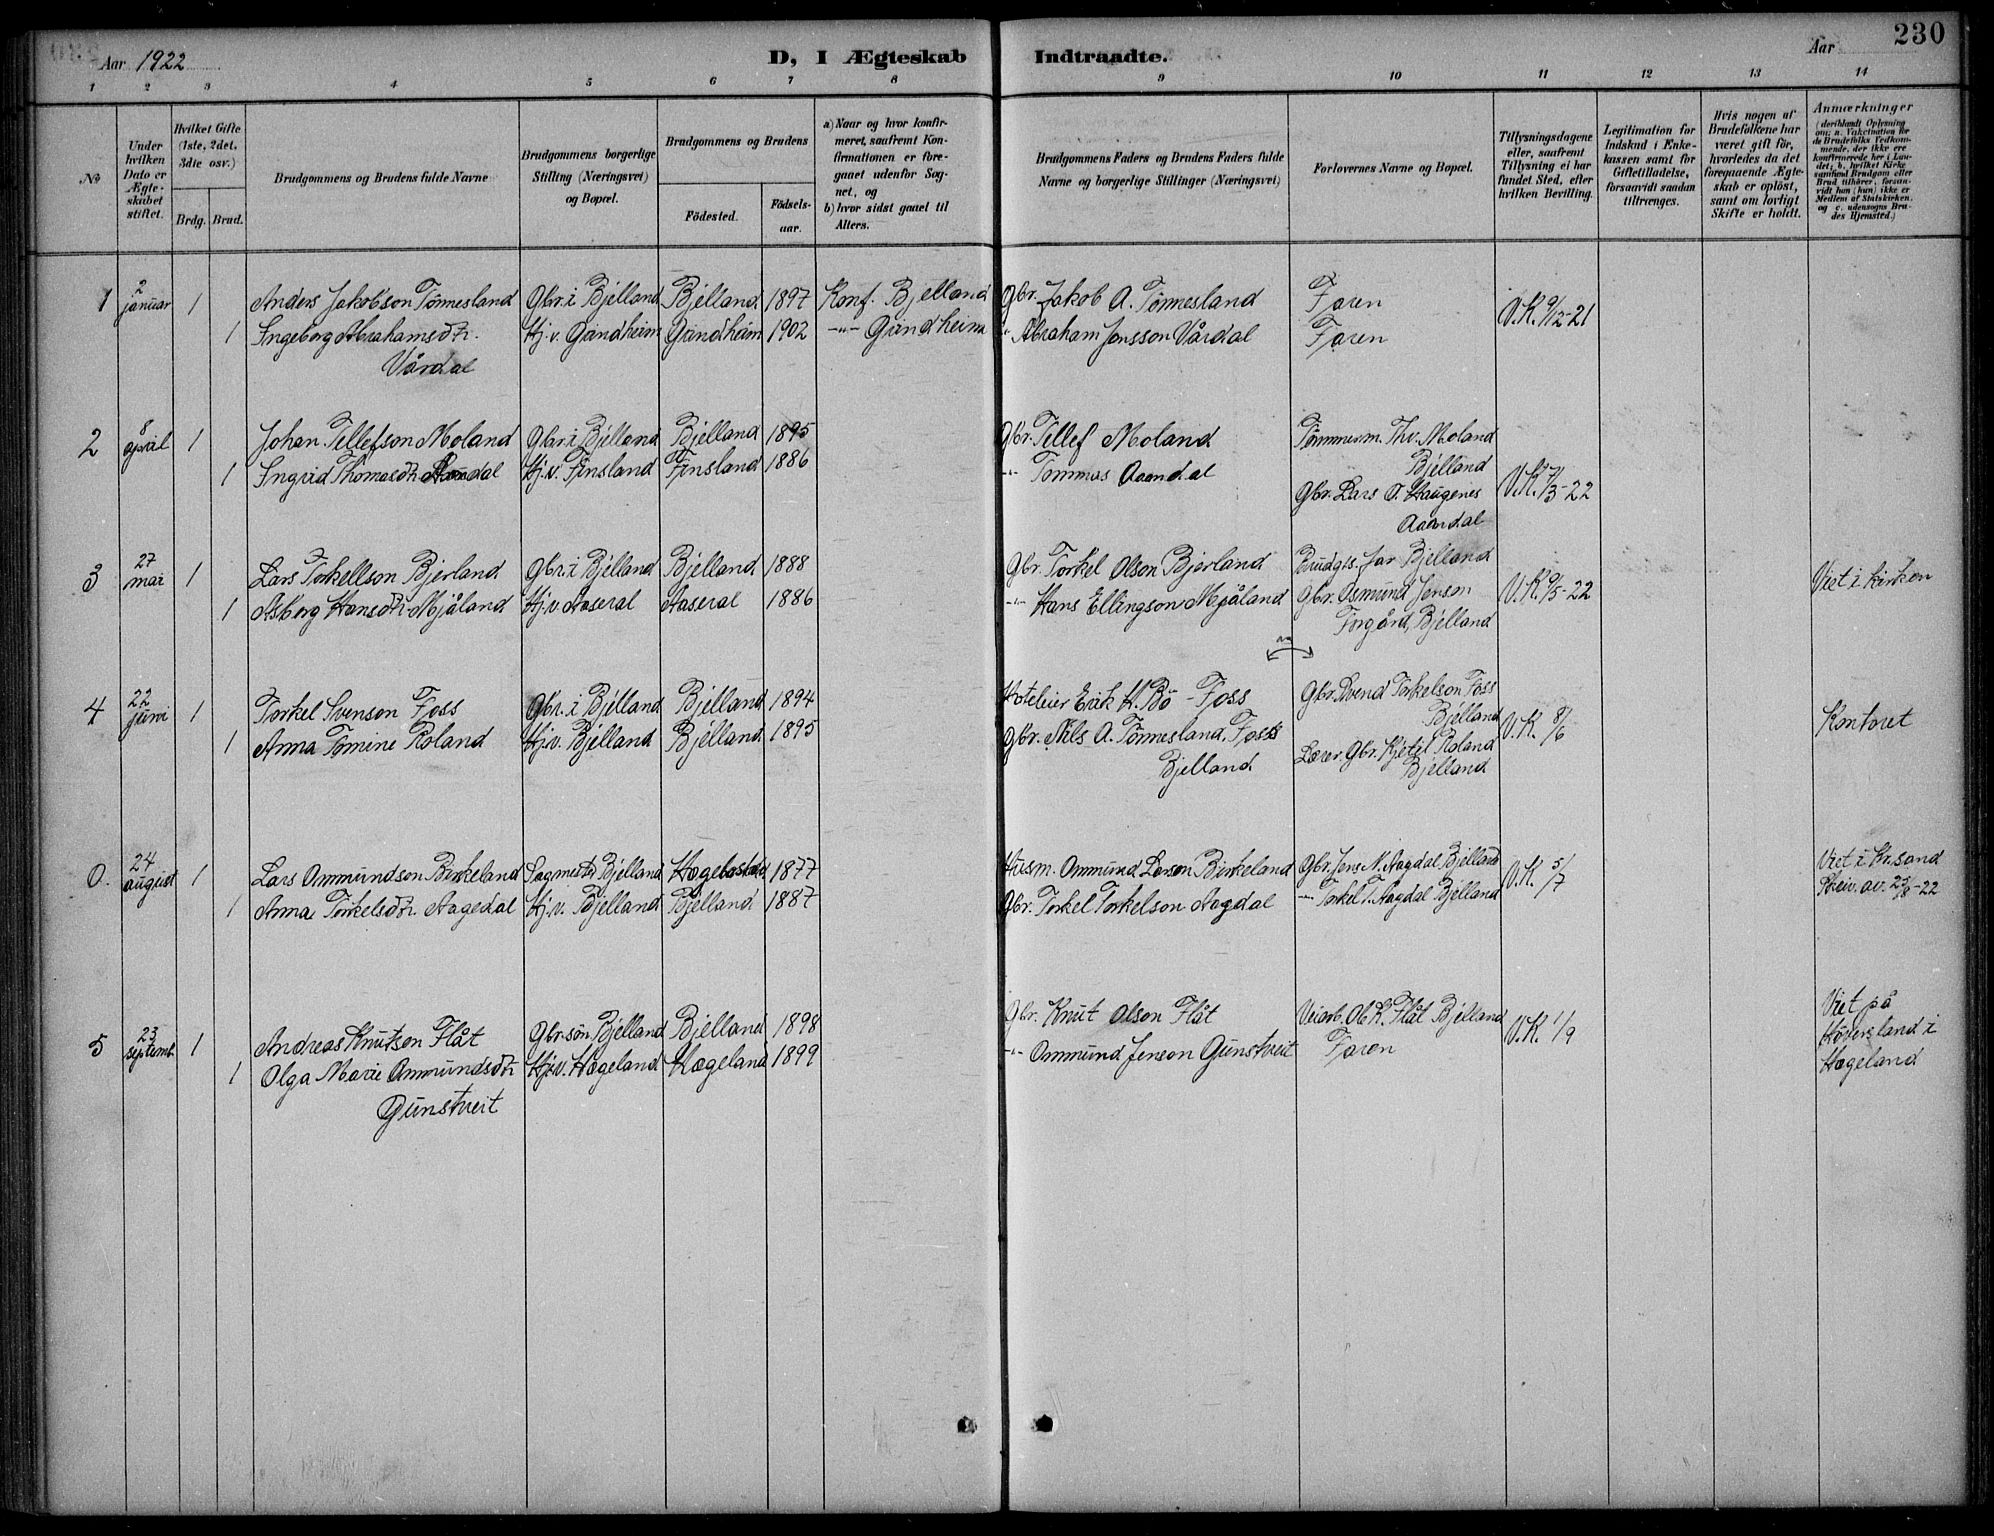 Aar 1922
D, I Ægteskab
Indtraadte.
Aar
230
1 2 3 4 5 6 7 8 9 10 11 12 13 14
No
Under
hvilken
Dato er
Ægte-
skabet
stiftet.
Hvilket Gifte
(1ste, 2det,
3die osv.)
Brdg. Brud.
Brudgommens og Brudens fulde Navne
Brudgommens borgerlige
Stilling (Næringsvei)
og Bopæl.
Brudgommens og Brudens
Födested.
Födsels-
aar.
a) Naar og hvor konfir-
meret, saafremt Kon-
firmationen er fore-
gaaet udenfor Sog-
net, og
b) hvor sidst gaaet til
Alters.
Brudgommens Faders og Brudens Faders fulde
Navne og borgerlige Stillinger (Næringsvei)
Forlovernes Navne og Bopæl.
Tillysningsdagene
eller, saafremt
Tillysning ei har
fundet Sted, efter
hvilken Bevilling.
Legitimation for
Indskud i Enke-
kassen samt for
Giftetilladelse,
forsaavidt saadan
tiltrænges.
Hvis nogen af
Brudefolkene har
været gift för,
hvorledes da det
foregaaende Ægte-
skab er oplöst,
samt om lovligt
Skifte er holdt.
Anmærkninger
(deriblandt Oplysning
om: a. Vakcination for
de Brudefolks Vedkom-
mende, der ikke ere
konfirmerede her i Lan-
det; b. hvilket Kirke
samfund Brudgom eller
Brud tilhörer, forsaa-
vidt han (hun) ikke er
Medlem af Statskirken,
og c. udensogns Bru-
des Hjemsted.)
1 2 januar 1 Anders Jakobson Tönnesland Gbr. i Bjelland Bjelland 1897 Konf. Bjelland Gbr. Jakob A. Tönnesland Faren V.K. 9/12-21
1 Ingeborg Abrahamsdtr. Hj.v. Grindheim Grindheim 1902 -"- Grindheim " Abraham Jensson Vårdal Faren
Vårdal
2 8 april 1 Johan Tellefson Moland Gbr. i Bjelland Bjelland 1895 Gbr. Tellef Moland Tömmerm. Thv. Moland
Bjelland
1 Ingrid Thomasdtr. Aamdal Hj.v. Finsland Finsland 1886 -"- Tommas Aamdal Gbr. Lars O. Haugenes V.K. 7/3-22
Aamdal
3 27 mai 1 Lars Torkellson Bjerland Gbr. i Bjelland Bjelland 1888 Gbr. Torkel Olson Bjerland Brudgs. far Bjelland Viet i kirken
1 Asborg Hansdtr. Mjåland Hj.v. Aaseral Aaseral 1886 -"- Hans Ellingson Mjåland Gbr. Osmund Jenson V.K. 9/5-22
Forgård, Bjelland
4 22 juni 1 Torkel Svenson Foss Gbr. i Bjelland Bjelland 1894 Hoteleier Erik K. Bö - Foss Gbr. Svend Torkelson Foss
Bjelland V.K. 8/6 Kontoret
1 Anna Tomine Roland Hj.v. Bjelland Bjelland 1895 Gbr. Nils A. Tönnesland, Foss Lærer Gbr. Kjetil Roland
Bjelland Bjelland
0. 24 august 1 Lars Ommundson Birkeland Sagmester Bjelland Hægebostad 1877 Husm. Ommund Larson Birkeland Gbr. Jens N. Aagdal Bjelland V.K. 5/7 Viet i Kr.sand
1 Anna Torkelsdtr. Aagedal Hj.v. Bjelland Bjelland 1887 Gbr. Torkel Torkelson Aagdal -"- Torkel T. Aagdal Bjelland Skriv. av. 25/8-22
5 23 septemb. 1 Andreas Knutson Flåt Gbr.sön Bjelland Bjelland 1898 Gbr. Knut Olson Flåt Veiarb. Ol. K. Flåt Bjelland V.K. 1/9 Viet på
1 Olga Marie Ommundsdtr. Hj.v. Hægeland Hægeland 1899 -"- Ommund Jenson Gunstveit Faren Höversland i
Gunstveit Hægeland